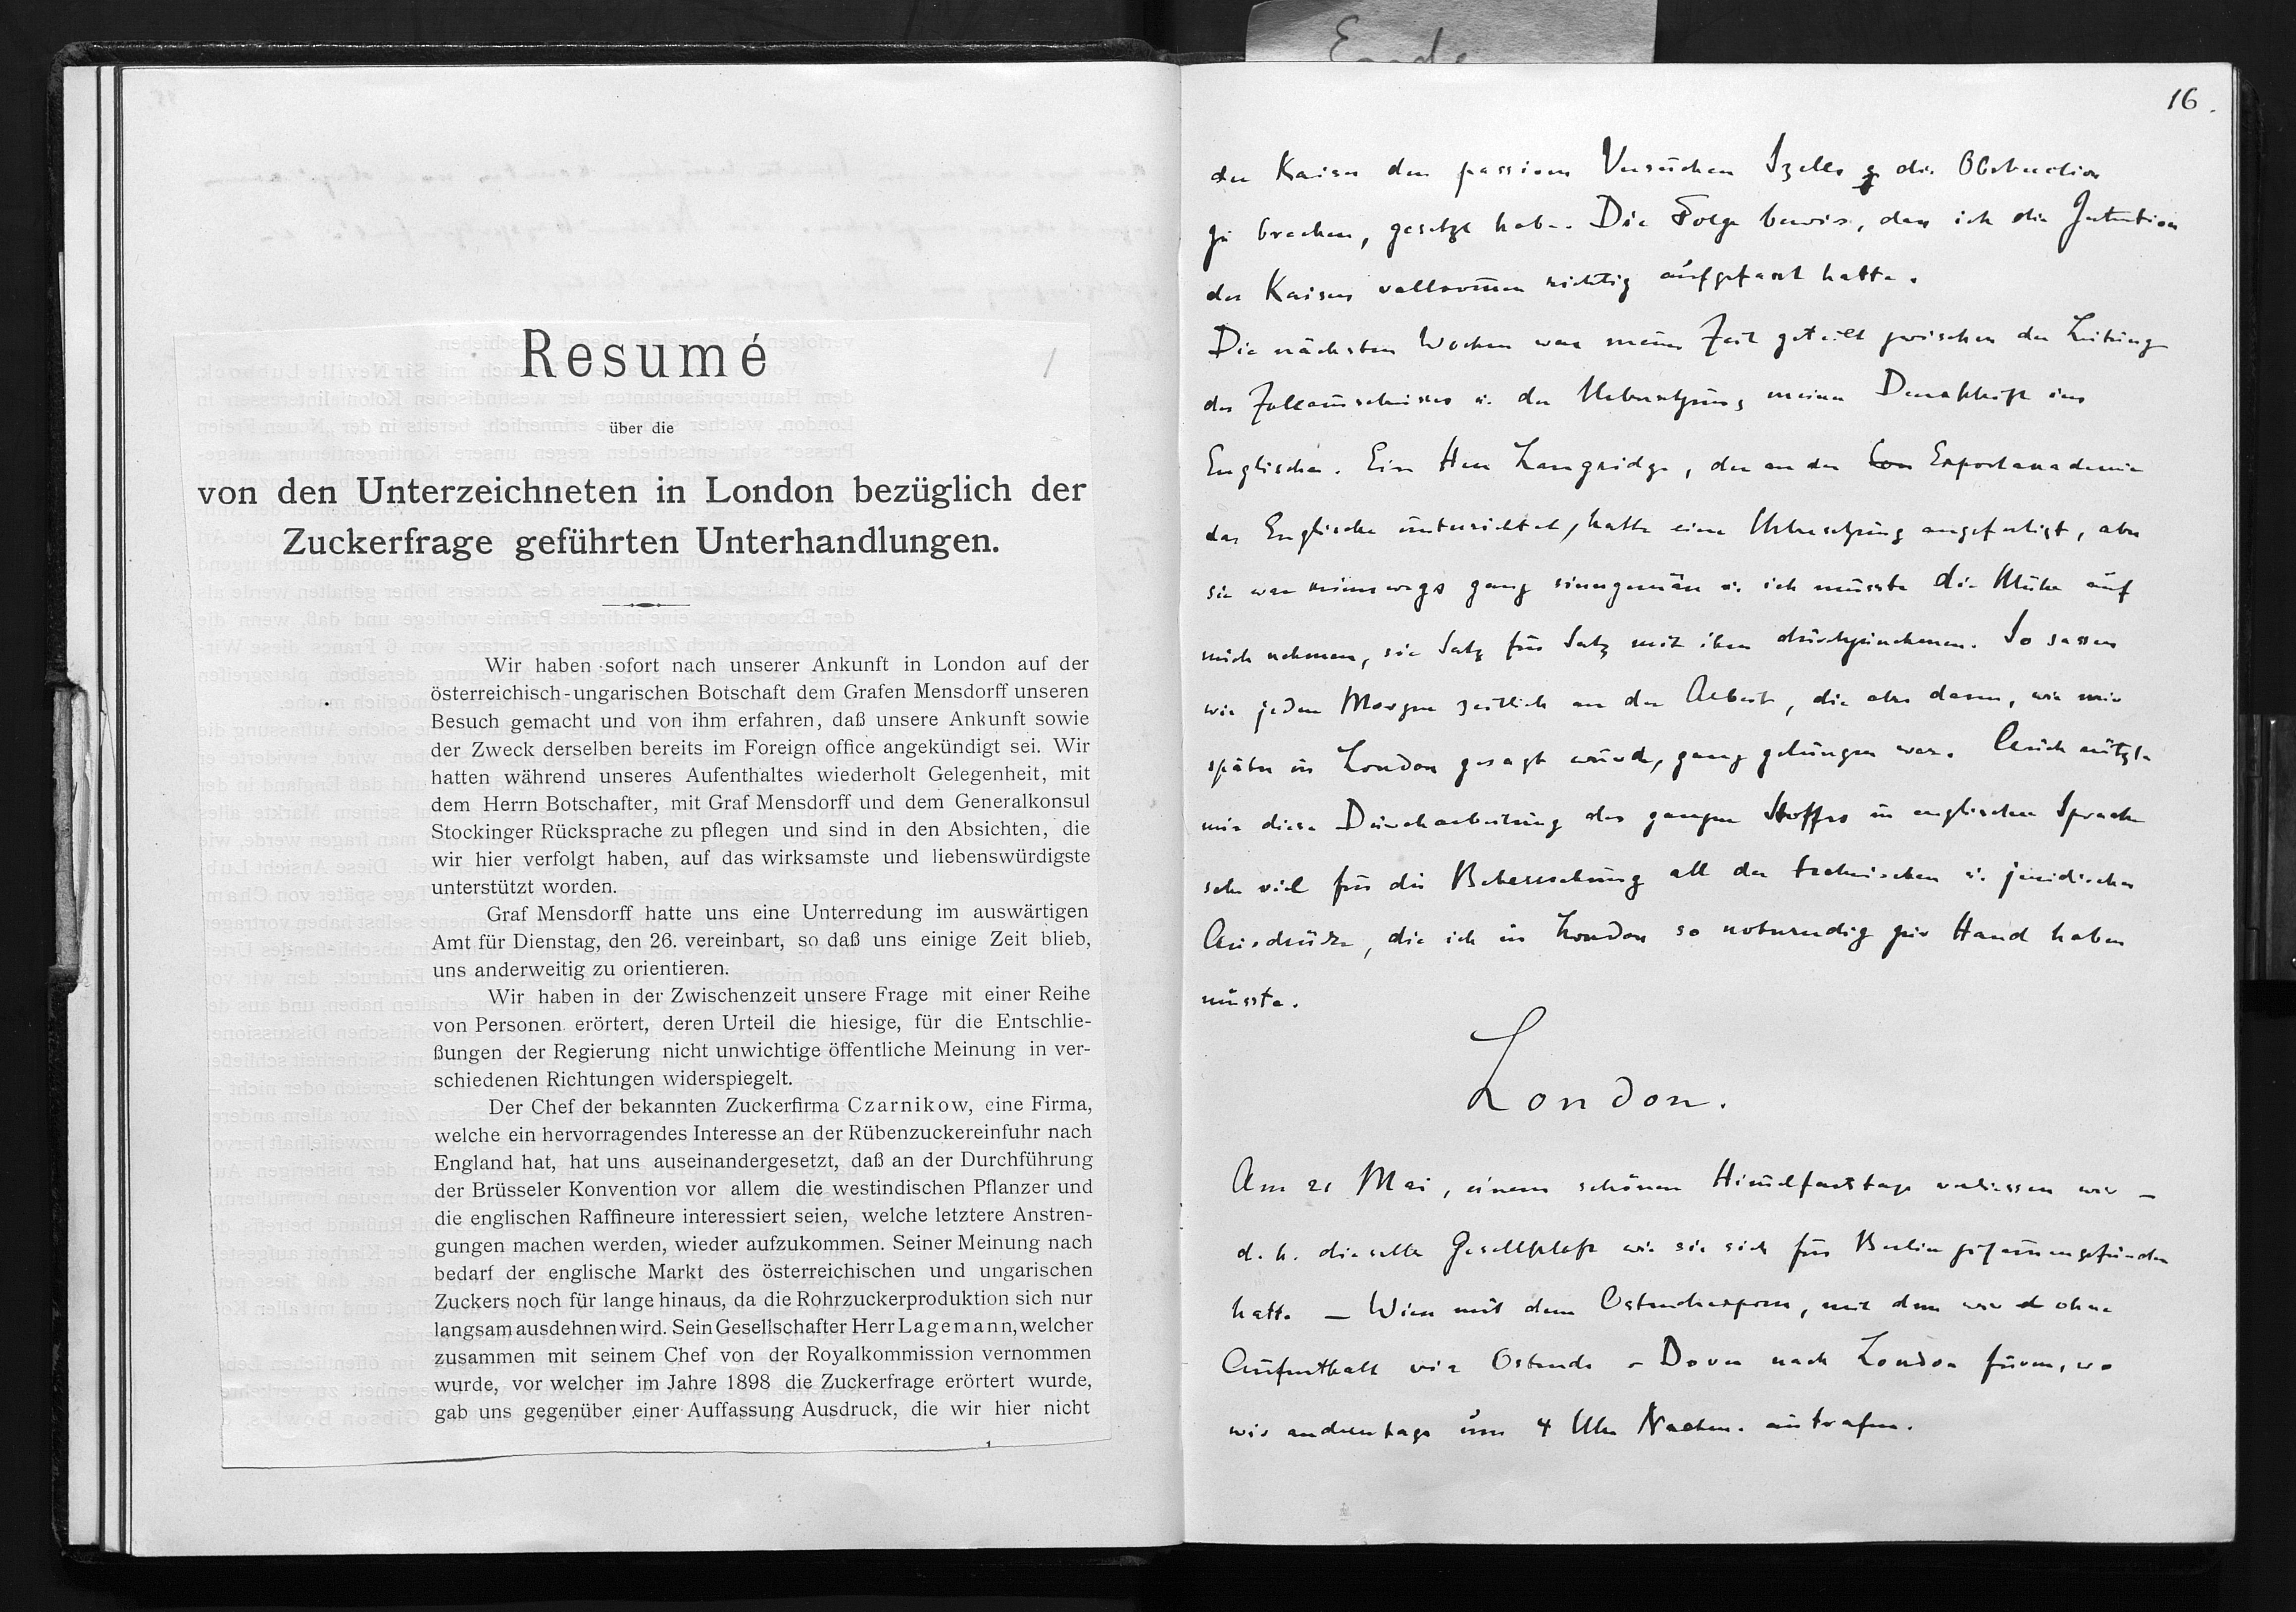 Ende
Resumé
1
über die
von den Unterzeichneten in London bezüglich der
Zuckerfrage geführten Unterhandlungen.
Wir haben sofort nach unserer Ankunft in London auf der
österreichisch-ungarischen Botschaft dem Grafen Mensdorff unseren
Besuch gemacht und von ihm erfahren, daß unsere Ankunft sowie
der Zweck derselben bereits im Foreign office angekündigt sei. Wir
hatten während unseres Aufenthaltes wiederholt Gelegenheit, mit
dem Herrn Botschafter, mit Graf Mensdorff und dem Generalkonsul
Stockinger Rücksprache zu pflegen und sind in den Absichten, die
wir hier verfolgt haben, auf das wirksamste und liebenswürdigste
unterstützt worden.
Graf Mensdorff hatte uns eine Unterredung im auswärtigen
Amt für Dienstag, den 26. vereinbart, so daß uns einige Zeit blieb,
uns anderweitig zu orientieren.
Wir haben in der Zwischenzeit unsere Frage mit einer Reihe
von Personen erörtert, deren Urteil die hiesige, für die Entschlie-
ßungen der Regierung nicht unwichtige öffentliche Meinung in ver-
schiedenen Richtungen widerspiegelt.
Der Chef der bekannten Zuckerfirma Czarnikow, eine Firma,
welche ein hervorragendes Interesse an der Rübenzuckereinfuhr nach
England hat, hat uns auseinandergesetzt, daß an der Durchführung
der Brüsseler Konvention vor allem die westindischen Pflanzer und
die englischen Raffineure interessiert seien, welche letztere Anstren-
gungen machen werden, wieder aufzukommen. Seiner Meinung nach
bedarf der englische Markt des österreichischen und ungarischen
Zuckers noch für lange hinaus, da die Rohrzuckerproduktion sich nur
langsam ausdehnen wird. Sein Gesellschafter Herr Lagemann, welcher
zusammen mit seinem Chef von der Royalkommission vernommen
wurde, vor welcher im Jahre 1898 die Zuckerfrage erörtert wurde,
gab uns gegenüber einer Auffassung Ausdruck, die wir hier nicht
16.
der Kaiser den passiven Versuchen Szells die Obstruction
zu brechen, gesetzt habe. Die Folge bewies, dass ich die Intention
des Kaisers vollkommen richtig aufgefasst hatte.
Die nächsten Wochen war meine Zeit geteilt zwischen der Leitung
des Zollausschusses u. der Uebersetzung meiner Denkschrift ins
Englische. Ein Herr Langridge, der an der Con Exportakademie
das Englische unterrichtet, hatte eine Uebersetzung angefertigt, aber
sie war keineswegs ganz sinngemäss u. ich musste die Mühe auf
mich nehmen, sie Satz für Satz mit ihm durchzunehmen. So sassen
wir jeden Morgen zeitlich an der Arbeit, die aber dann, wie mir
später in London gesagt wurde, ganz gelungen war. Auch nützte
mir diese Durcharbeitung des ganzen Stoffes in englischer Sprache
sehr viel für die Beherrschung all der technischen u. juridischen
Ausdrücke, die ich in London so notwendig zur Hand haben
musste.
London.
Am 21 Mai, einem schönen Himmelfahrtstage verliessen wir –
d. h. dieselbe Gesellschaft wie sie sich für Berlin zusammengefunden
hatte – Wien mit dem Ostendeexpress, mit dem wir ohne
Aufenthalt via Ostende - Dover nach London fuhren, wo
wir anderntags um 4 Uhr Nachm. eintrafen.